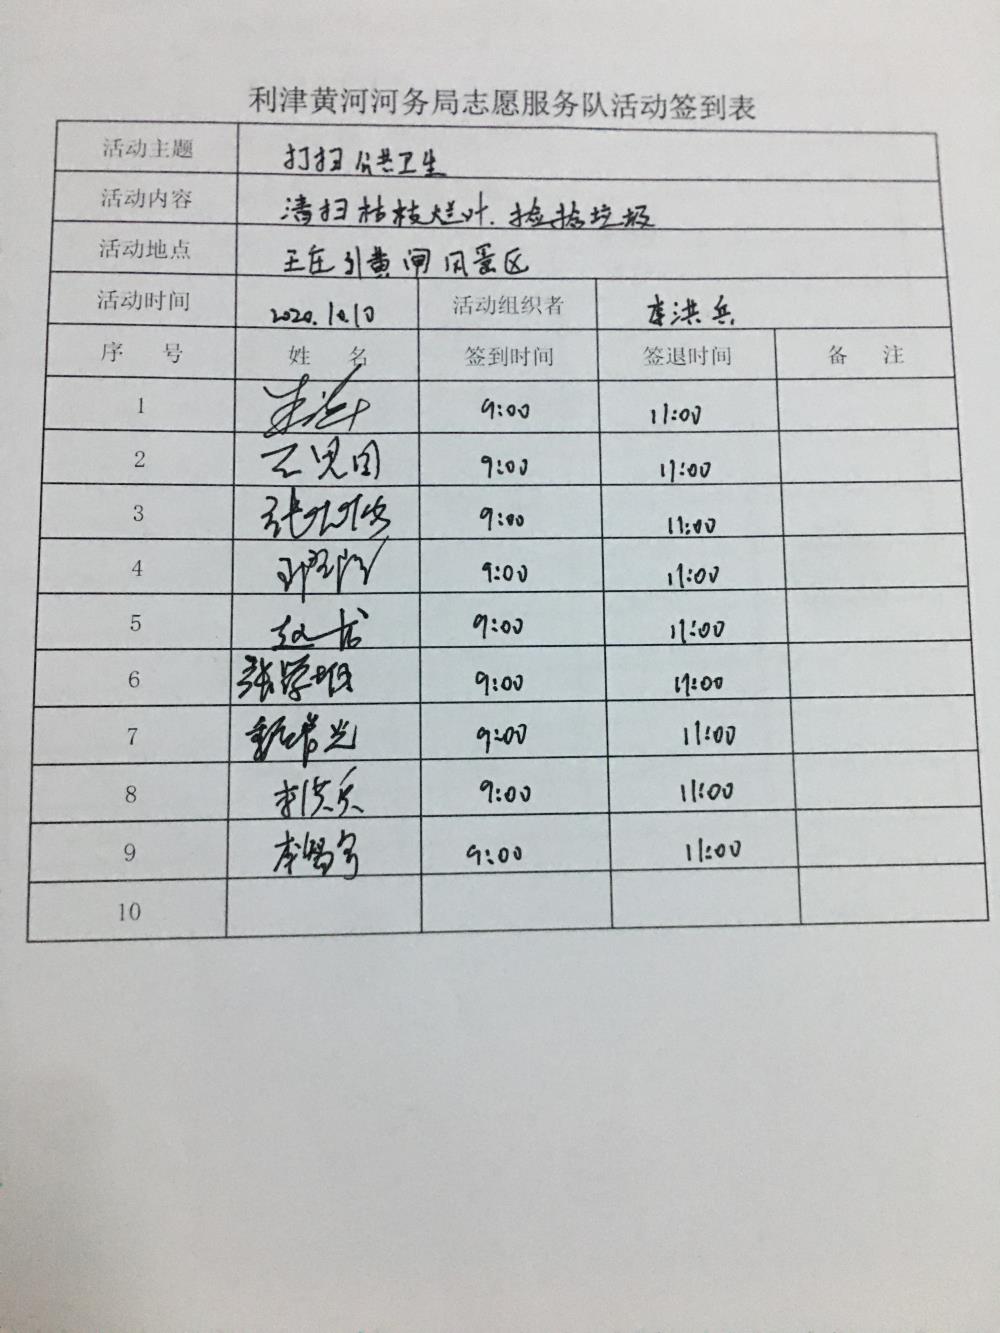 利津黄河河务局志愿服务队活动签到表
活动主题 打扫公共卫生
活动内容 清扫枯枝烂叶.捡拾垃圾
活动地点 王庄引黄闸风景区
活动时间 2020.10.10 活动组织者 李洪兵
序号 姓名 签到时间 签退时间 备注
1 9:00 11:00
2 9:00 11:00
3 9:00 11:00
4 9:00 11:00
5 9:00 11:00
6 9:00 11:00
7 9:00 11:00
8 李洪兵 9:00 11:00
9 9:00 11:00
10